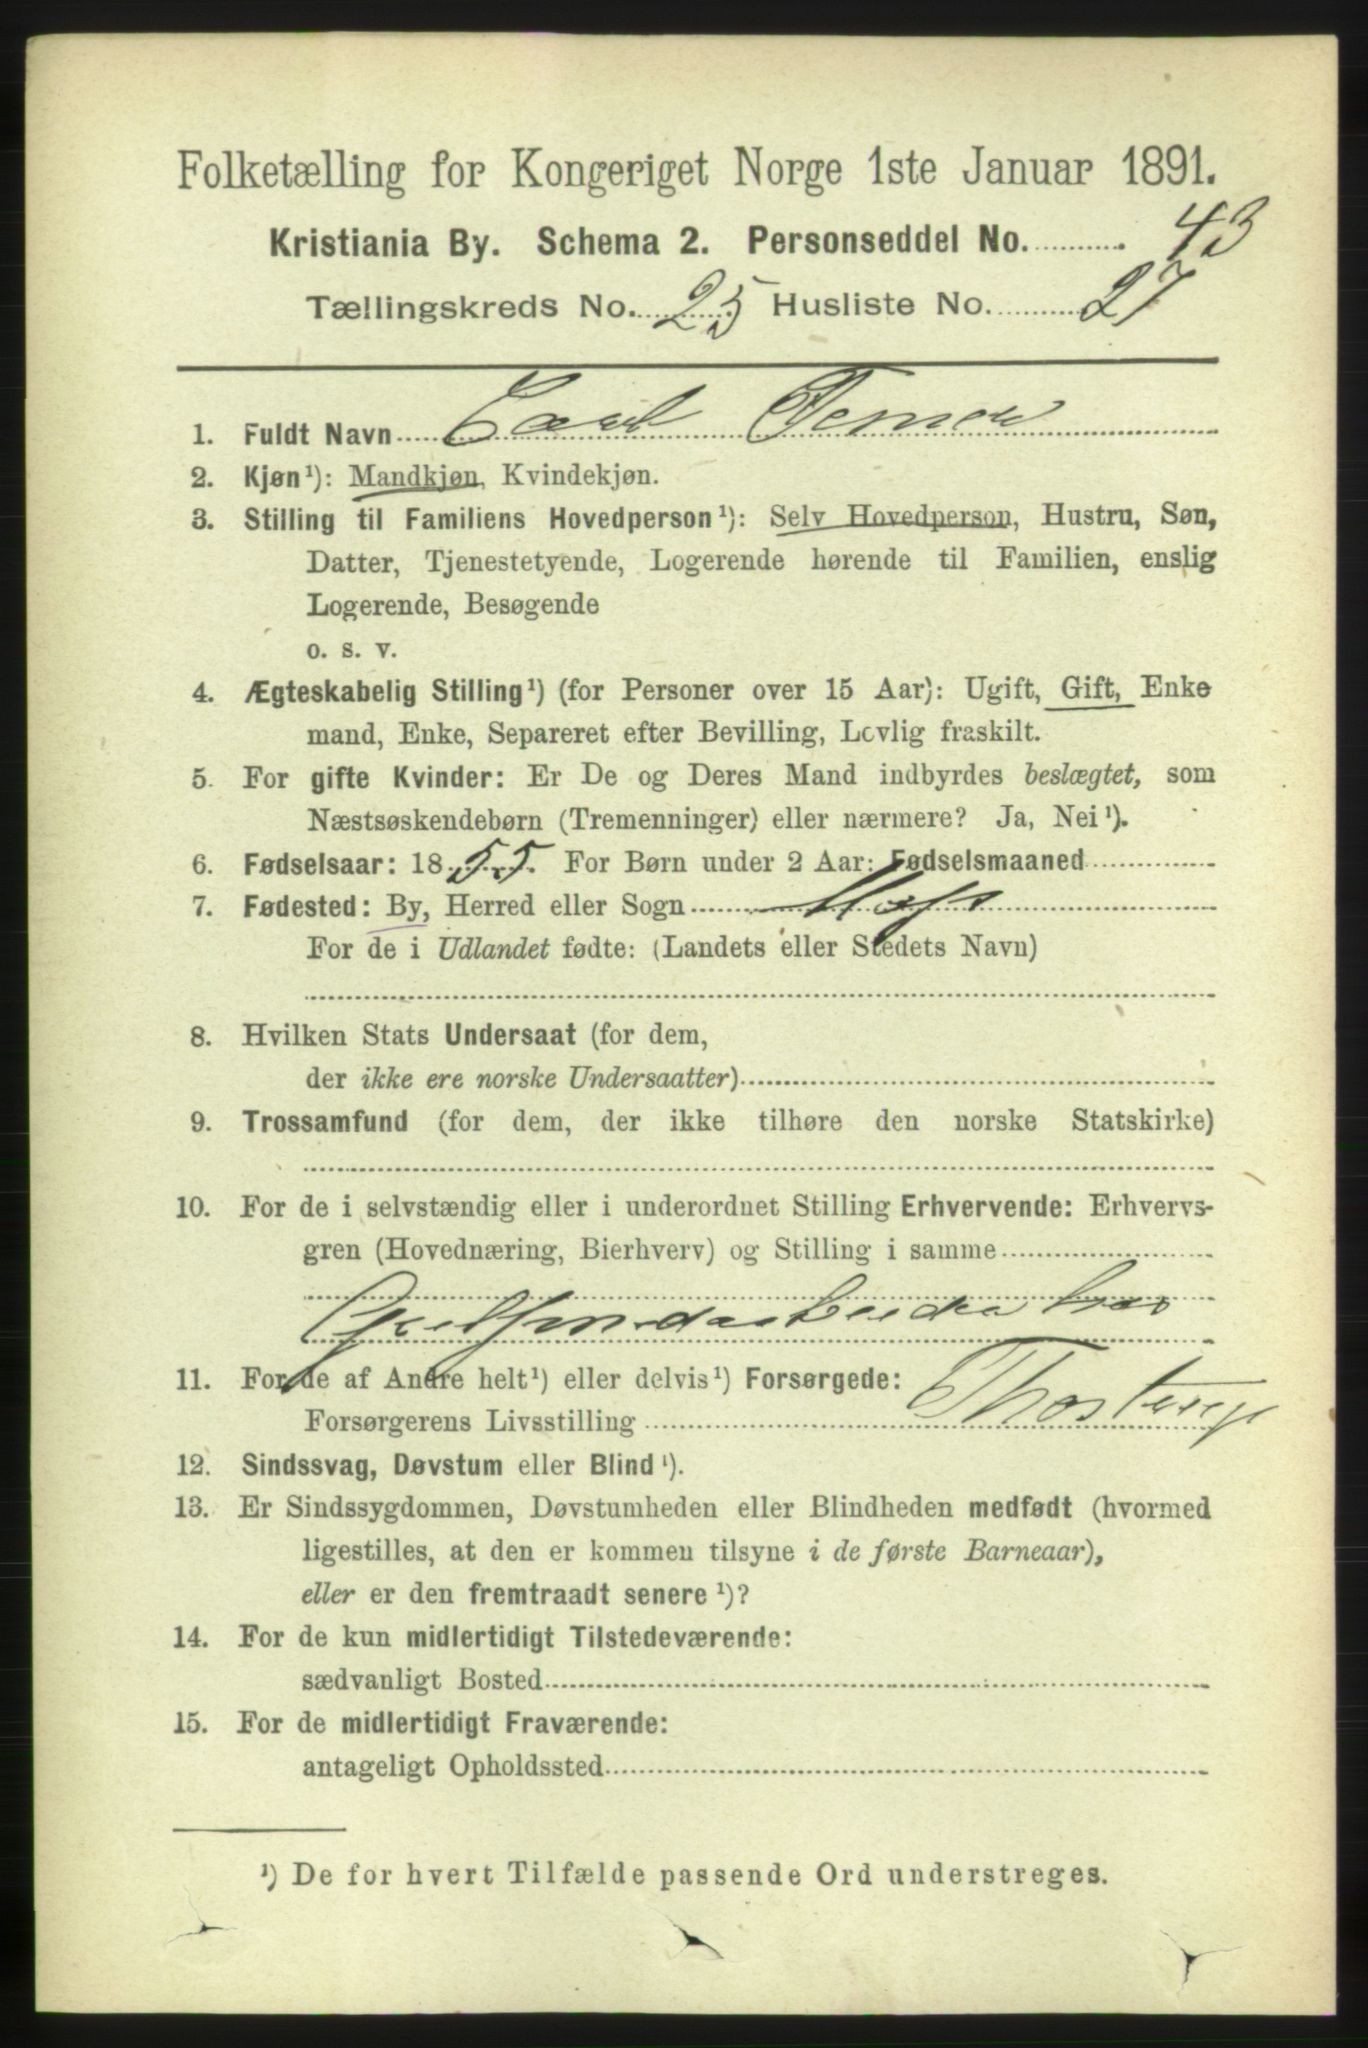 Folketælling for Kongeriget Norge 1ste Januar 1891.
Kristiania By. Schema 2. Personseddel No. 43
Tællingskreds No. 25 Husliste No. 27
1. Fuldt Navn Carl
2. Kjøn¹): Mandkjøn, Kvindekjøn.
3. Stilling til Familiens Hovedperson¹): Selv Hovedperson, Hustru, Søn,
Datter, Tjenestetyende, Logerende hørende til Familien, enslig
Logerende, Besøgende
o. s. v.
4. Ægteskabelig Stilling¹) (for Personer over 15 Aar): Ugift, Gift, Enke
mand, Enke, Separeret efter Bevilling, Lovlig fraskilt.
5. For gifte Kvinder: Er De og Deres Mand indbyrdes beslægtet, som
Næstsøskendebørn (Tremenninger) eller nærmere? Ja, Nei¹).
6. Fødselsaar: 1855. For Børn under 2 Aar: Fødselsmaaned
7. Fødested: By, Herred eller Sogn Moss
For de i Udlandet fødte: (Landets eller Stedets Navn)
8. Hvilken Stats Undersaat (for dem,
der ikke ere norske Undersaatter)
9. Trossamfund (for dem, der ikke tilhøre den norske Statskirke)
10. For de i selvstændig eller i underordnet Stilling Erhvervende: Erhvervs-
gren (Hovednæring, Bierhverv) og Stilling i samme
hos
11. For de af Andre helt¹) eller delvis¹) Forsørgede:
Forsørgerens Livsstilling
12. Sindssvag, Døvstum eller Blind¹).
13. Er Sindssygdommen, Døvstumheden eller Blindheden medfødt (hvormed
ligestilles, at den er kommen tilsyne i de første Barneaar),
eller er den fremtraadt senere¹)?
14. For de kun midlertidigt Tilstedeværende:
sædvanligt Bosted
15. For de midlertidigt Fraværende:
antageligt Opholdssted
¹) De for hvert Tilfælde passende Ord understreges.